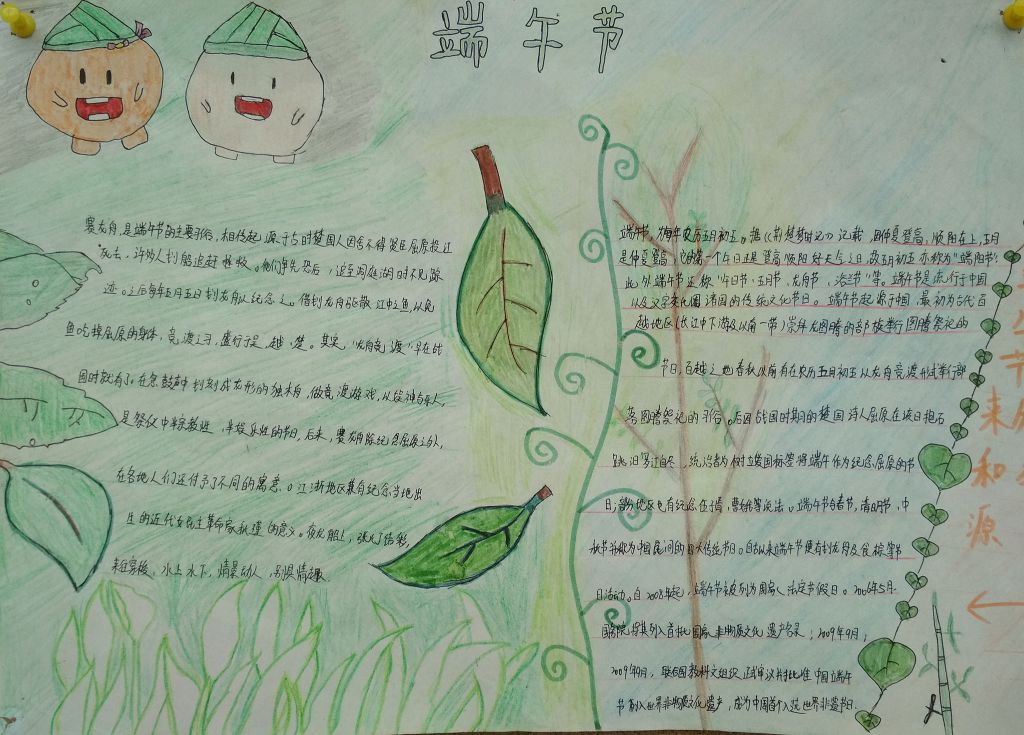 端午节
赛龙舟，是端午节的主要习俗，相传起源于古时楚国人因舍不得贤臣屈原投江
死去，许多人划船追赶拯救。他们争先恐后，追至洞庭湖时不见踪
迹。之后每年五月五日划龙舟以纪念之。借划龙舟驱散江中之鱼，以免
鱼吃掉屈原的身体，竞渡之习，盛行于吴、越、楚。其实，"龙舟竞渡"早在战
国时就有了。在急鼓声中划刻成龙形的独木舟，做竞渡游戏，以娱神与乐人，
是祭仪中半宗教性、半娱乐性的节目，后来，赛龙舟除纪念屈原之外，
在各地人们还付予了不同的寓意。江浙地区兼有纪念当地出
生的近代女民主革命家秋瑾的意义。夜龙船上，张灯结彩，
来往穿梭，水上水下，情景动人，别具情趣。
端午节，为每年农历五月初五。据《荆楚岁时记》记载，因仲夏登高，顺阳在上，五月
是仲夏，它的第一个午日正是登高顺阳好天气之日，故五月初五亦称为"端阳节"。
此外端午节还称"午日节、五月节、龙舟节、浴兰节"等。端午节是流行于中国
以及汉字文化圈诸国的传统文化节日。端午节起源于中国，最初为古代百
越地区（长江中下游及以南一带）崇拜龙图腾的部族举行图腾祭祀的
节日，百越之地春秋以前有在农历五月初五以龙舟竞渡形式举行部
落图腾祭祀的习俗。后因战国时期的楚国诗人屈原在该日抱石
跳汨罗江自尽，统治者为树立爱国标签将端午作为纪念屈原的节
日；部分地区也有纪念伍子胥、曹娥等说法。端午节与春节、清明节、中
秋节并称为中国民间的四大传统节日。自古以来端午节便有划龙舟及食粽等节
日活动。自2008年起，端午节被列为国家法定节假日。2006年5月，
国务院将其列入首批国家非物质文化遗产名录；2009年9月，
2009年9月，联合国教科文组织正式审议并批准中国端午
节列入世界非物质文化遗产，成为中国首个入选世界非遗节日。
节
来
和
源